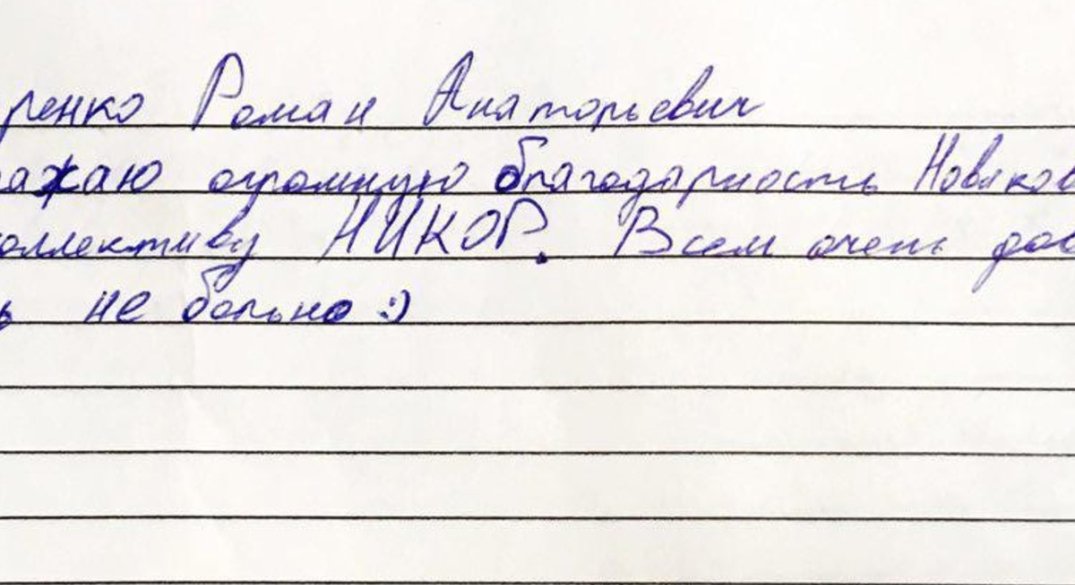 ренко Роман Анатольевич
ажаю огромную благодарность Новиков
оллективу НИКОР. Всем очень дов
ь не больно :)